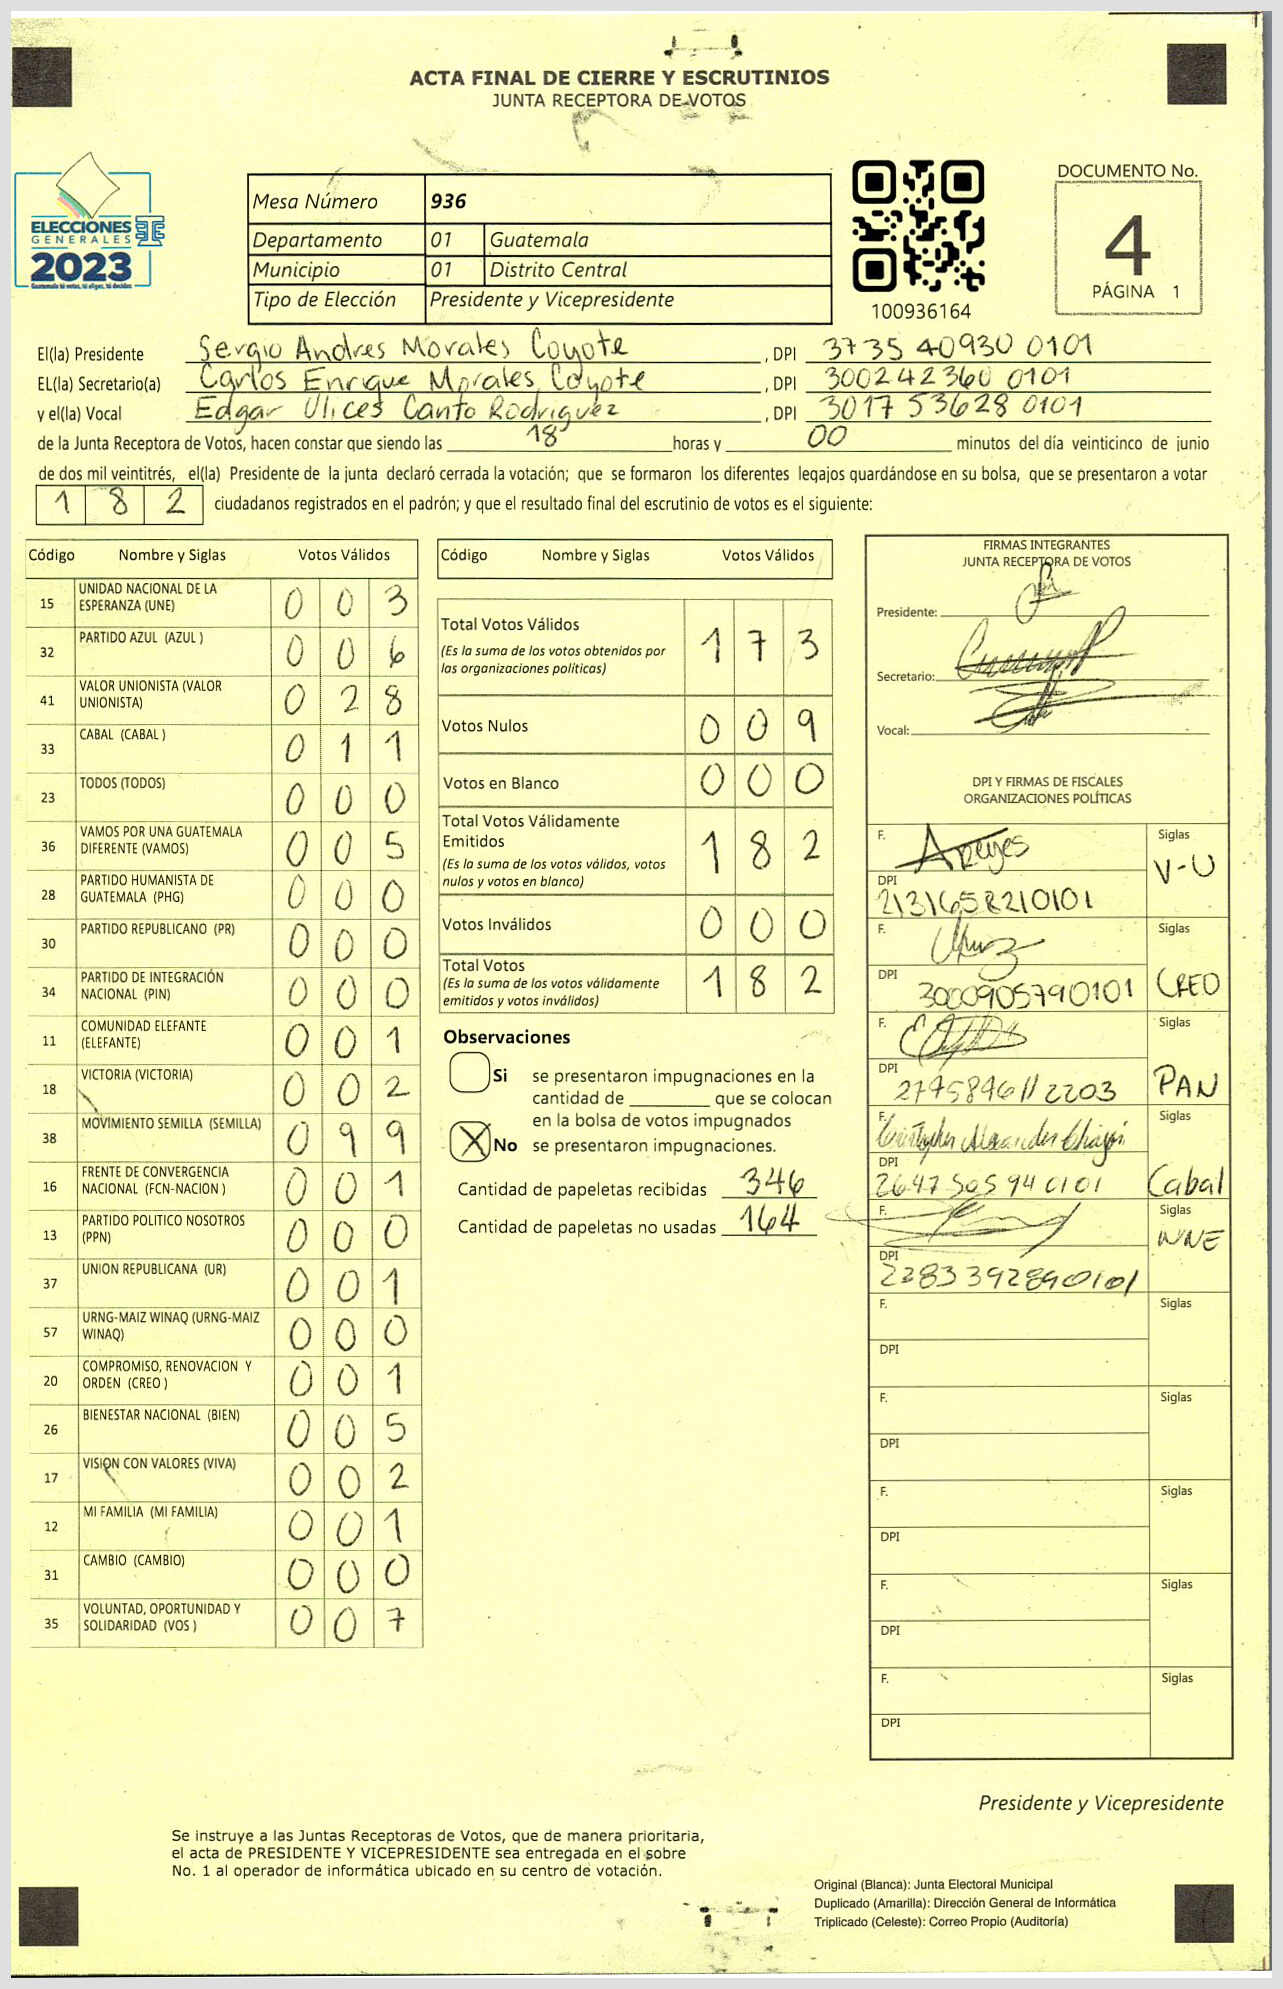 ACTA FINAL DE CIERRE Y ESCRUTINIOS
JUNTA RECEPTORA DE VOTOS
ELECCIONES
GENERALES
2023
Guatemala tú votas, tú eliges, tú decides
Mesa Número 936
Departamento 01 Guatemala
Municipio 01 Distrito Central
Tipo de Elección Presidente y Vicepresidente
100936164
DOCUMENTO No.
4
PÁGINA 1
El(la) Presidente Sergio Andres Morales Coyote, DPI 3735 40930 0101
EL(la) Secretario(a) Carlos Enrique Morales Coyote, DPI 300242360 0101
y el(la) Vocal Edgar Ulices Canto Rodriguez, DPI 3017 53628 0101
de la Junta Receptora de Votos, hacen constar que siendo las 18 horas y 00 minutos del día veinticinco de junio
de dos mil veintitrés, el(la) Presidente de la junta declaró cerrada la votación; que se formaron los diferentes legajos guardándose en su bolsa, que se presentaron a votar
1 8 2 ciudadanos registrados en el padrón; y que el resultado final del escrutinio de votos es el siguiente:
Código Nombre y Siglas Votos Válidos
15 UNIDAD NACIONAL DE LA ESPERANZA (UNE) 0 0 3
32 PARTIDO AZUL (AZUL ) 0 0 6
41 VALOR UNIONISTA (VALOR UNIONISTA) 0 2 8
33 CABAL (CABAL ) 0 1 1
23 TODOS (TODOS) 0 0 0
36 VAMOS POR UNA GUATEMALA DIFERENTE (VAMOS) 0 0 5
28 PARTIDO HUMANISTA DE GUATEMALA (PHG) 0 0 0
30 PARTIDO REPUBLICANO (PR) 0 0 0
34 PARTIDO DE INTEGRACIÓN NACIONAL (PIN) 0 0 0
11 COMUNIDAD ELEFANTE (ELEFANTE) 0 0 1
18 VICTORIA (VICTORIA) 0 0 2
38 MOVIMIENTO SEMILLA (SEMILLA) 0 9 9
16 FRENTE DE CONVERGENCIA NACIONAL (FCN-NACION ) 0 0 1
13 PARTIDO POLITICO NOSOTROS (PPN) 0 0 0
37 UNION REPUBLICANA (UR) 0 0 1
57 URNG-MAIZ WINAQ (URNG-MAIZ WINAQ) 0 0 0
20 COMPROMISO, RENOVACION Y ORDEN (CREO ) 0 0 1
26 BIENESTAR NACIONAL (BIEN) 0 0 5
17 VISION CON VALORES (VIVA) 0 0 2
12 MI FAMILIA (MI FAMILIA) 0 0 1
31 CAMBIO (CAMBIO) 0 0 0
35 VOLUNTAD, OPORTUNIDAD Y SOLIDARIDAD (VOS ) 0 0 7
Código Nombre y Siglas Votos Válidos
Total Votos Válidos 1 7 3
(Es la suma de los votos obtenidos por
las organizaciones políticas)
Votos Nulos 0 0 9
Votos en Blanco 0 0 0
Total Votos Válidamente
Emitidos 1 8 2
(Es la suma de los votos válidos, votos
nulos y votos en blanco)
Votos Inválidos 0 0 0
Total Votos 1 8 2
(Es la suma de los votos válidamente
emitidos y votos inválidos)
Observaciones
Si se presentaron impugnaciones en la
cantidad de ________ que se colocan
en la bolsa de votos impugnados
X No se presentaron impugnaciones.
Cantidad de papeletas recibidas 346
Cantidad de papeletas no usadas 164
FIRMAS INTEGRANTES
JUNTA RECEPTORA DE VOTOS
Presidente:
Secretario:
Vocal:
DPI Y FIRMAS DE FISCALES
ORGANIZACIONES POLÍTICAS
F. Siglas
V-U
DPI
F. Siglas
DPI 3000905790101 CREO
F. Siglas
DPI 2795896112203 PAN
F. Cristopher Alexander Siglas
DPI 2647 505 94 0101 Cabal
F. Siglas
UNE
DPI 2283392890101
F. Siglas
DPI
F. Siglas
DPI
F. Siglas
DPI
F. Siglas
DPI
F. Siglas
DPI
Presidente y Vicepresidente
Se instruye a las Juntas Receptoras de Votos, que de manera prioritaria,
el acta de PRESIDENTE Y VICEPRESIDENTE sea entregada en el sobre
No. 1 al operador de informática ubicado en su centro de votación.
Original (Blanca): Junta Electoral Municipal
Duplicado (Amarilla): Dirección General de Informática
Triplicado (Celeste): Correo Propio (Auditoría)